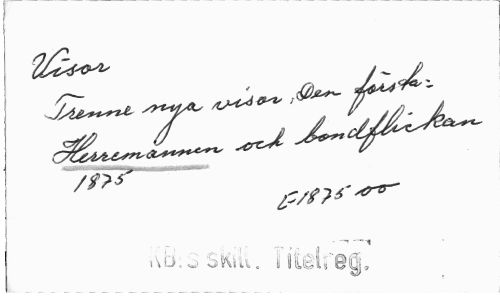 Visor
Trenne nya visor, Den första:
Herremannen och bondflickan
1875
E1875 oo
KB:s skill. Titelreg.